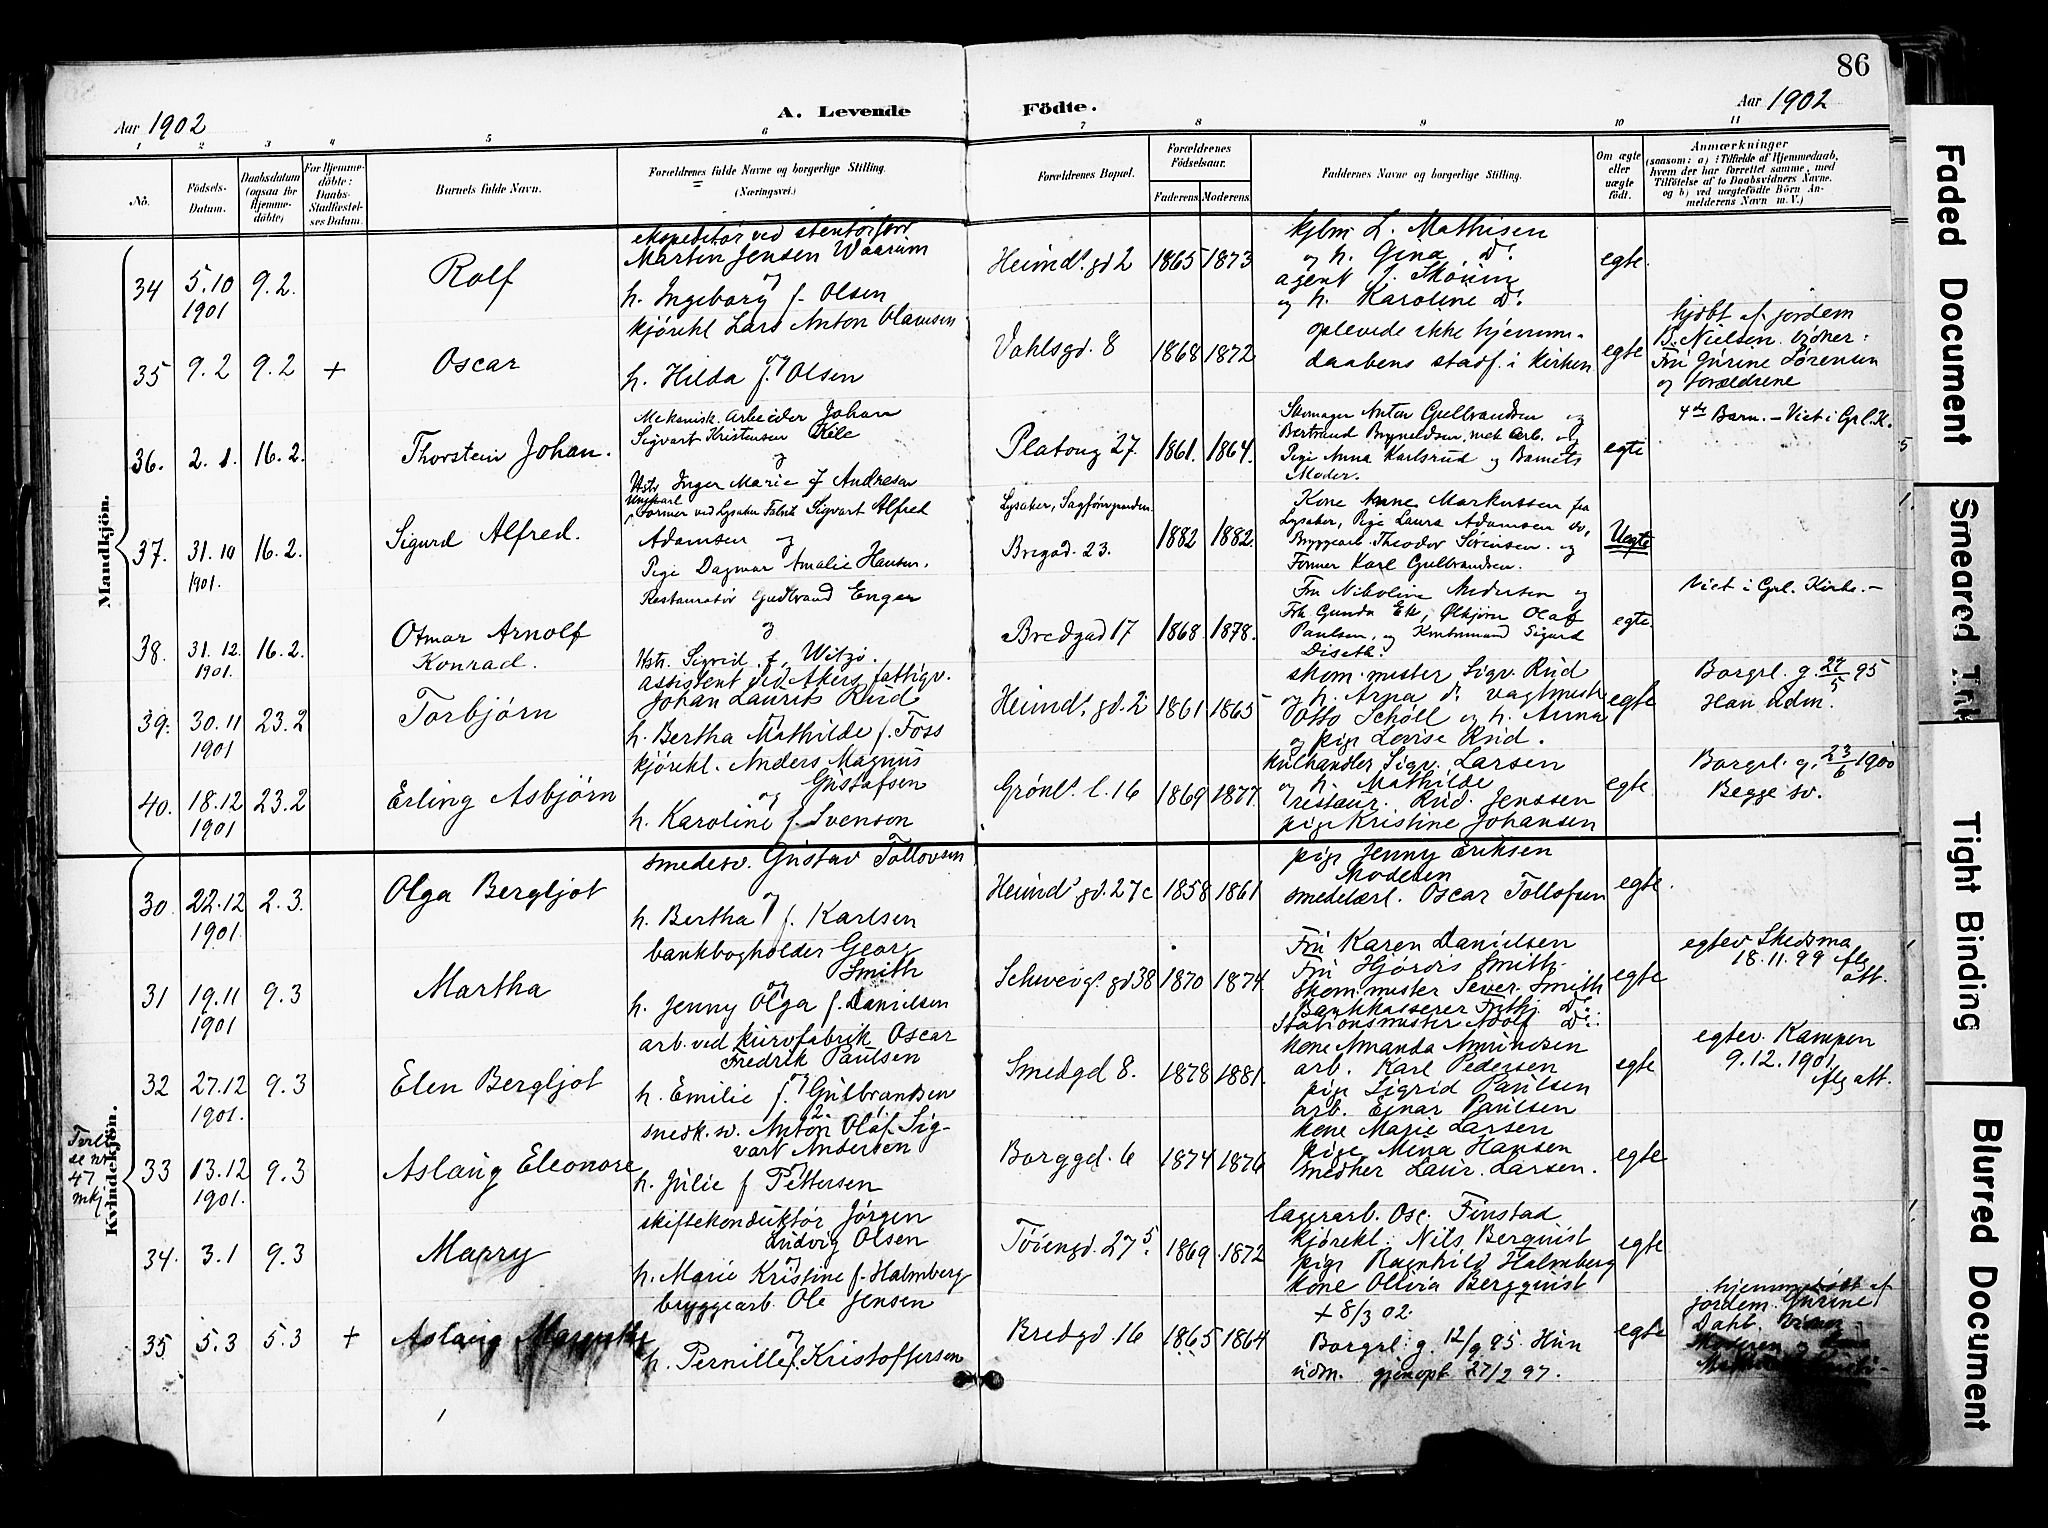 86
Aar 1902
A. Levende
Födte.
Aar 1902
1 2 3 4 5 6 7 8 9 10 11
No.
Födsels-
Datum.
Daabsdatum
(ogsaa for
Hjemme-
döbte)
For Hjemme-
döbte:
Daabs-
Stadfæstel-
ses Datum.
Barnets fulde Navn.
Forældrenes fulde Navne og borgerlige Stilling.
(Næringsvei.)
Forældrenes Bopæl.
Forældrenes
Födselsaar.
Faderens. Moderens.
Faddernes Navne og borgerlige Stilling.
Om ægte
eller
uægte
födt.
Anmærkninger
(saasom: a) i Tilfælde af Hjemmedaab,
hvem der har forrettet samme, med
Tilföielse af to Daabsvidners Navne.
og b) ved uægtefödte Börn An-
melderens Navn m. V.)
Mandkjön.
34
5.10
1901
9.2.
Rolf
ekspeditør ved
Martin Jensen Waarum
og
h. Ingeborg f. Olsen
Heimds. gd 2
1865
1873
kjbm L. Mathisen
og h. Gina do.
agent J.
og h. Karoline do.
egte.
35
9.2
9.2
+
Oscar
kjørekl Lars Anton Olavesen
og
h. Hilda f. Olsen
Vahlsgd. 8
1868
1872
oplevede ikke hjemme-
daabens stadf. i kirken
egte
hjdbt af jordem
B. Nielsen. vidner:
Fru Jurine Sørensen
og forældrene
36.
2.1.
16.2.
Thorstein Johan.
Mekanisk. Arbeider Johan
Sigvart Kristensen Kile
og
Hstr Inger Marie f Andresen
Platoug 27.
1861.
1864.
Skomager Anton Gulbrandsen og
Bertrand Bryneldsen, mek arb. og
Pige Anna Karlsrud og Barnets
Moder.
egte
4de Barn. – Viet i Grl. K.
37.
31.10
1901.
16.2.
Sigurd Alfred.
Ungkarl
Former ved Lysaker Fabrik Sigvart Alfred
Adamsen og
Pige Dagmar Amalie Hansen.
Lysaker,
Bregad. 23.
1882
1882.
Kone Anne Markussen fra
Lysaker, Pige Laura Adamsen do,
Bryggearb. Theodor Sørensen. og
Former Karl Gulbrandsen.
Uegte
38.
31.12.
1901.
16.2.
Otmar Arnolf
Konrad.
Restauratør Gudbrand Enger
og
Hstr. Sigrid f. Witzø.
Bredgad 17
1868
1878.
Fru Nikoline Andersen og
Frk Gunda Ek, Ølkjører Olaf
Paulsen, og Kontormand Sigurd
Diseth.
egte.
Viet i Grl. Kirke. –
39.
30.11
1901
23.2
Torbjørn
assistent ved Akers fattigv.
Johan Laurits Rud
og
h. Bertha Mathilde f. Foss
Heimds. gd. 2
1861
1865
skom. mester Sigv. Rud
og h. Arna do. vagtmest
Otto Schøll og h. Anna
og pige Lovise Rud.
egte
Borgrl. g. 27/5 95
Han udm.
40.
18.12
1901
23.2
Erling Asbjørn
kjørekl. Anders Magnus
Gustafsen
og
h. Karoline f. Svenson
Grønls. l. 16
1869
1877.
kulhandler Sigv. Larsen
og h. Mathilde
restaur. Rud. Jenssen
pige Kristine Johansen
egte.
Borgrl. g. 23/6 1900
Begge sv.
Kvindekjön.
30.
22.12
1901.
2.3.
Olga Bergljot
smedesv. Gustav Tollovsen
og
h. Bertha f. Karlsen
Heimds gd. 27c
1858
1861
pige Jenny Eriksen
Moderen
smedelærl. Oscar Tollofsen
egte.
31
19.11
1901
9.3
Martha
bankbogholder Georg
Smith
og
h. Jenny Olga f. Danielsen
Schweigs. gd 38
1870
1874
Fru Karen Danielsen
Fru Hjørdis Smith
Skom. mester Sever. Smith
Bankkasserer Fritj. do.
Stationsmester Adolf do.
egte
egtev Skedsmo
18.11.99 flg
att.
32
27.12
1901.
9.3
Elen Bergljot
arb. ved kurvfabrik Oscar
Fredrik Paulsen
og
h. Emilie f. Gulbrandsen
Smedgd 8.
1878
1881.
kone Amanda Amundsen
arb. Karl Pedersen
pige Sigrid Paulsen
arb. Einar Paulsen
egte
egtev. Kampen
9.12.1901.
flg att.
47
mkj
33
13.12
1901.
9.3
Aslaug Eleonore
snedk. sv. Anton Olaf Sig-
vart Andersen
og
h. Julie f Pettersen
Borggd. 6
1874
1876
kone Marie Larsen
pige Mina Hansen
snedker Laur. Larsen.
egte
34.
3.1
9.3
Marry
skiftekonduktør Jørgen
Ludvig Olsen
og
h. Marie Kristine f. Halmberg
Tøiengd. 27
1869.
1872
lagerarb. Osc. Finstad
kjørekl. Nils Bergquist
pige Ragnhild Halmberg
kone Olivia Bergquist
egte
35
5.3
5.3
+
Aslaug
bryggearb. Ole Jensen
og
h. Pernille f. Kristoffersen
Bredgd 16
1865
1864
+ 8/3 02.
Borgrl. g. 12/9 95. Hun
udm. gjenopt 27/2 97.
egte
hjemmedøbt af
jordem. Jurine
Dahl.
Moderen og
Faded Document
Smeared Ink
Tight Binding
Blurred Document